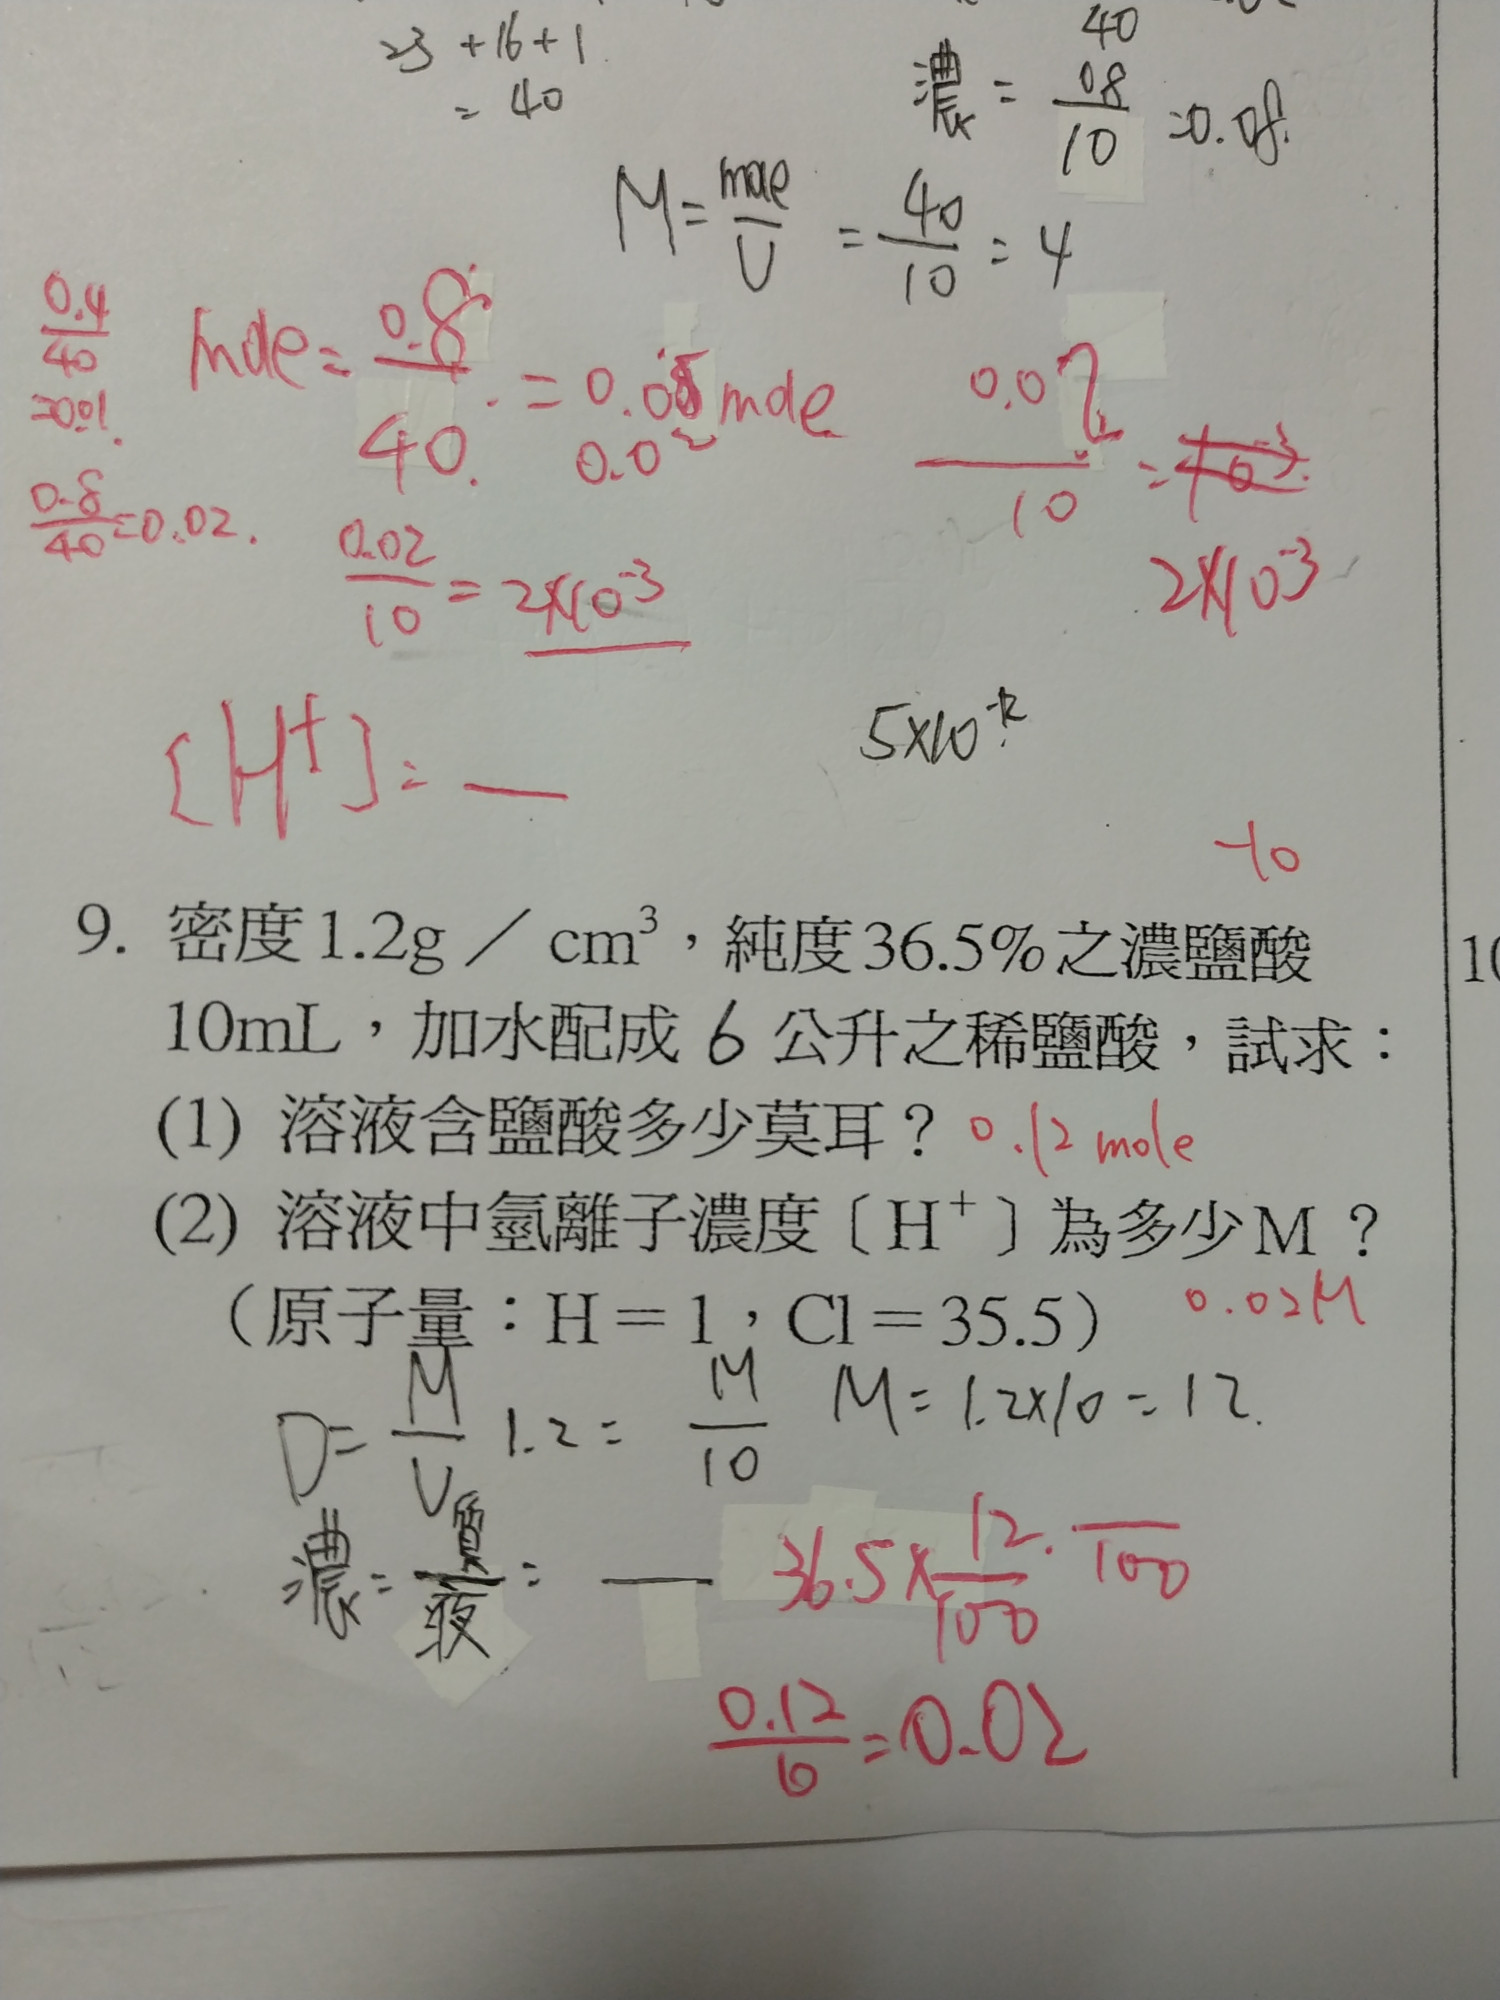 23 + 16 + 1
= 40
40
濃 = 0.8/10 = 0.08
M = mole/V = 40/10 = 4
0.4/40 = 0.01
mole = 0.8/40 = 0.05 mole
0.02
0.02/10 =
2×10⁻³
0.8/40 = 0.02
0.02/10 = 2×10⁻³
[H⁺] = —
5×10
-10
9. 密度1.2g/cm³，純度36.5%之濃鹽酸
10mL，加水配成 6 公升之稀鹽酸，試求：
(1) 溶液含鹽酸多少莫耳？ 0.12 mole
(2) 溶液中氫離子濃度〔H⁺〕為多少M？
（原子量：H＝1，Cl＝35.5） 0.02M
D = M/V 1.2 = M/10 M = 1.2×10 = 12.
濃 = 質/液 = — 36.5 × 12/100 . —/100
0.12/6 = 0.02
10